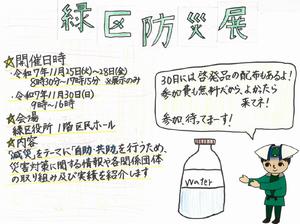 緑区防災展
☆開催日時
・令和7年11月25日(火)~28日(金)
8時30分~17時15分 ※展示のみ
・令和7年11月30日(日)
9時~16時
☆会場
緑区役所 1階区民ホール
☆内容
「減災」をテーマに「自助・共助」を行うため、
災害対策に関する情報や各関係団体
の取り組み及び実績を紹介します
30日には啓発品の配布もあるよ!
参加費も無料だから、よかったら
来てネ!
参加、待ってまーす!
Water